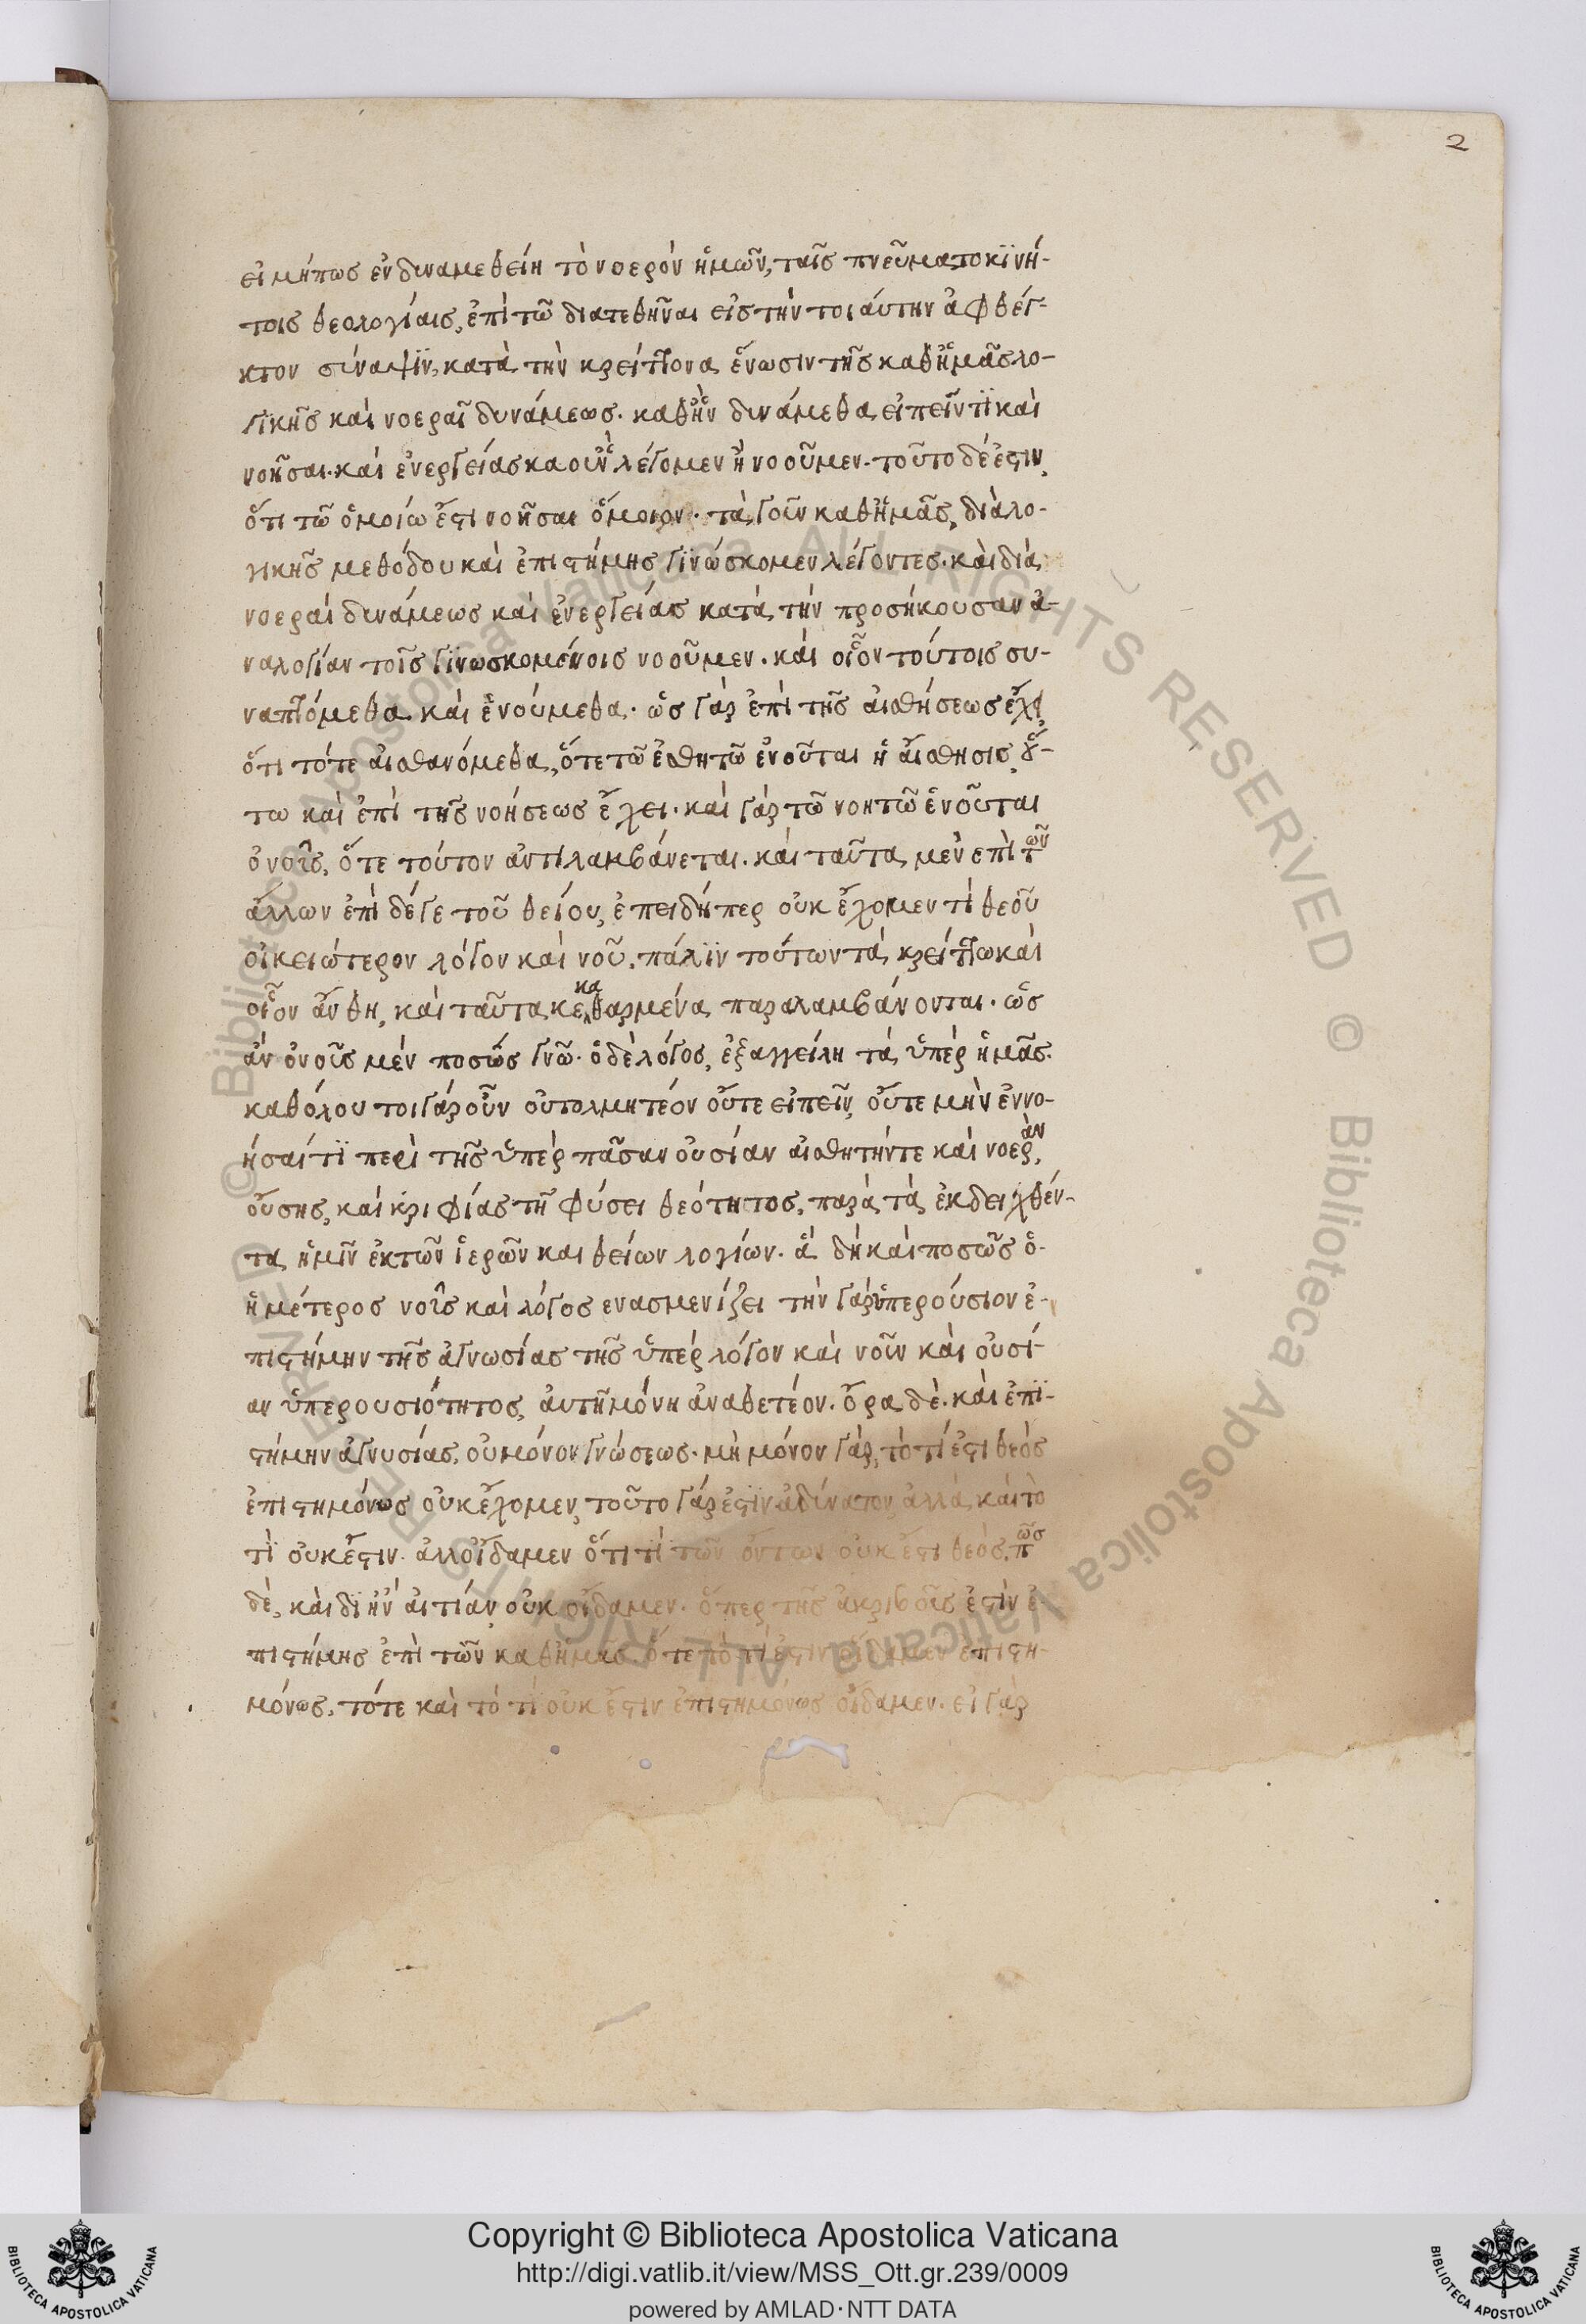 2
εἰ μήπως ἐν διναμεθείη τὸ νοερὸν ἡμῶν, ταῖς πνεῦματοκϊνή-
τοις θεολογίαις, ἐπὶ τῶ διατεθῆναι εἰς τὴν τοιάυτην ἀφθέγ-
κτον σύναψϊν, κατὰ τὴν κρείττονα ἕνωσιν τῆς καθἡμᾶς λο-
γικῆς καὶ νοερᾶς δυνάμεως. καθἣν δινάμεθα εἰπεῖν τϊ καὶ
νοῆσαι. καὶ ἐνεργείας λέγομεν ἢ νοοῦμεν. τοῦτο δέ ἐστιν
ὅτι τῶ ὁμοίω ἐστι νοῆσαι ὅμοιον. τὰ γοῦν καθἡμᾶς, διὰ λο-
γικῆς μεθόδου καὶ ἐπιστήμης γϊνώσκομεν λέγοντες. καὶ διὰ
νοερᾶς δινάμεως καὶ ἐνεργείας κατὰ τὴν προσήκουσαν ἀ-
ναλογίαν τοῖς γϊνωσκομένοις νοοῦμεν. καὶ οἷον τούτοις συ-
ναπτόμεθα καὶ ἑνούμεθα. ὡς γὰρ ἐπὶ τῆς αἰσθήσεως ἔχει
ὅτι τότε αἰσθανόμεθα, ὅτε τῶ ἐσθητῶ ἑνοῦται ἡ αἴσθησις, οὕ-
τω καὶ ἐπὶ τῆς νοήσεως ἔχει. καὶ γὰρ τῶ νοητῶ ἑνοῦται
ὁ νοῦς, ὅτε τούτον ἀντιλαμβάνεται. καὶ ταῦτα μὲν ἐπὶ τῶν
ἄλλων ἐπὶ δέ γε τοῦ θείου, ἐπειδήπερ οὐκ ἔχομεν τὶ θεοῦ
οἰκειώτερον λόγον καὶ νοῦ, πάλϊν τούτων τὰ κρείττω καὶ
οἷον ἄνθη, καὶ ταῦτα κεκαθαρμένα παραλαμβάνονται. ὡς
ἀν ὁ νοῦς μὲν ποσῶς γνῶ. ὁ δὲ λόγος, ἐξαγγείλη τὰ ὑπὲρ ἡμᾶς.
καθόλου τοιγάρουν οὐτολμητέον οὔτε εἰπεῖν, οὔτε μὴν ἐννο-
ήσαί τϊ περὶ τῆς ὑπὲρ πᾶσαν οὐσίαν αἰσθητήντε καὶ νοεράν,
οὔσης, καὶ κριφίας τῆ φύσει θεότητος, παρὰ τὰ ἐκδειχθέν-
τα ἡμῖν ἐκτῶν ἱερῶν και θείων λογίων. ἃ δὴ καὶ ποσῶς ὁ-
ἡμέτερος νοῦς καὶ λόγος ενασμενίζει τὴν γὰρ ὑπερούσιον ἐ-
πιστήμην τῆς ἀγνωσίας τῆς ὑπὲρ λόγον καὶ νοῦν καὶ οὐσί-
αν ὑπερουσιότητος, ἀυτῆ μόνη ἀναθετέον. ὅρα δὲ. καὶ ἐπϊ-
στήμην ἀγνυσίας, οὐ μόνον γνώσεως. μὴ μόνον γὰρ, τὸ τί ἐστι θεὸς
ἐπιστημόνως οὐκ ἔχομεν, τοῦτο γάρ ἐστϊν ἀδύνατον, ἀλλὰ, καὶ τὸ
τϊ οὐκ ἔστιν. ἀλλ οἴδαμεν ὅτι τί τῶν ὄντων οὐκ ἔστι θεὸς, πῶς
δὲ, καὶ δϊ ἣν ἀιτίαν οὐκ οἴδαμεν. ὅπερ τῆς ἀκριβοῦς ἐστὶν ἐ-
πιστήμης ἐπὶ τῶν καθἡμᾶς. ὅτε τὸ τί ἐστιν οἴδαμεν ἐπιστη-
μόνως, τότε καὶ τὸ τί οὐκ ἔστιν ἐπιστημόνως οἴδαμεν. εἰ γὰρ
Copyright © Biblioteca Apostolica Vaticana
http://digi.vatlib.it/view/MSS_Ott.gr.239/0009
powered by AMLAD·NTT DATA